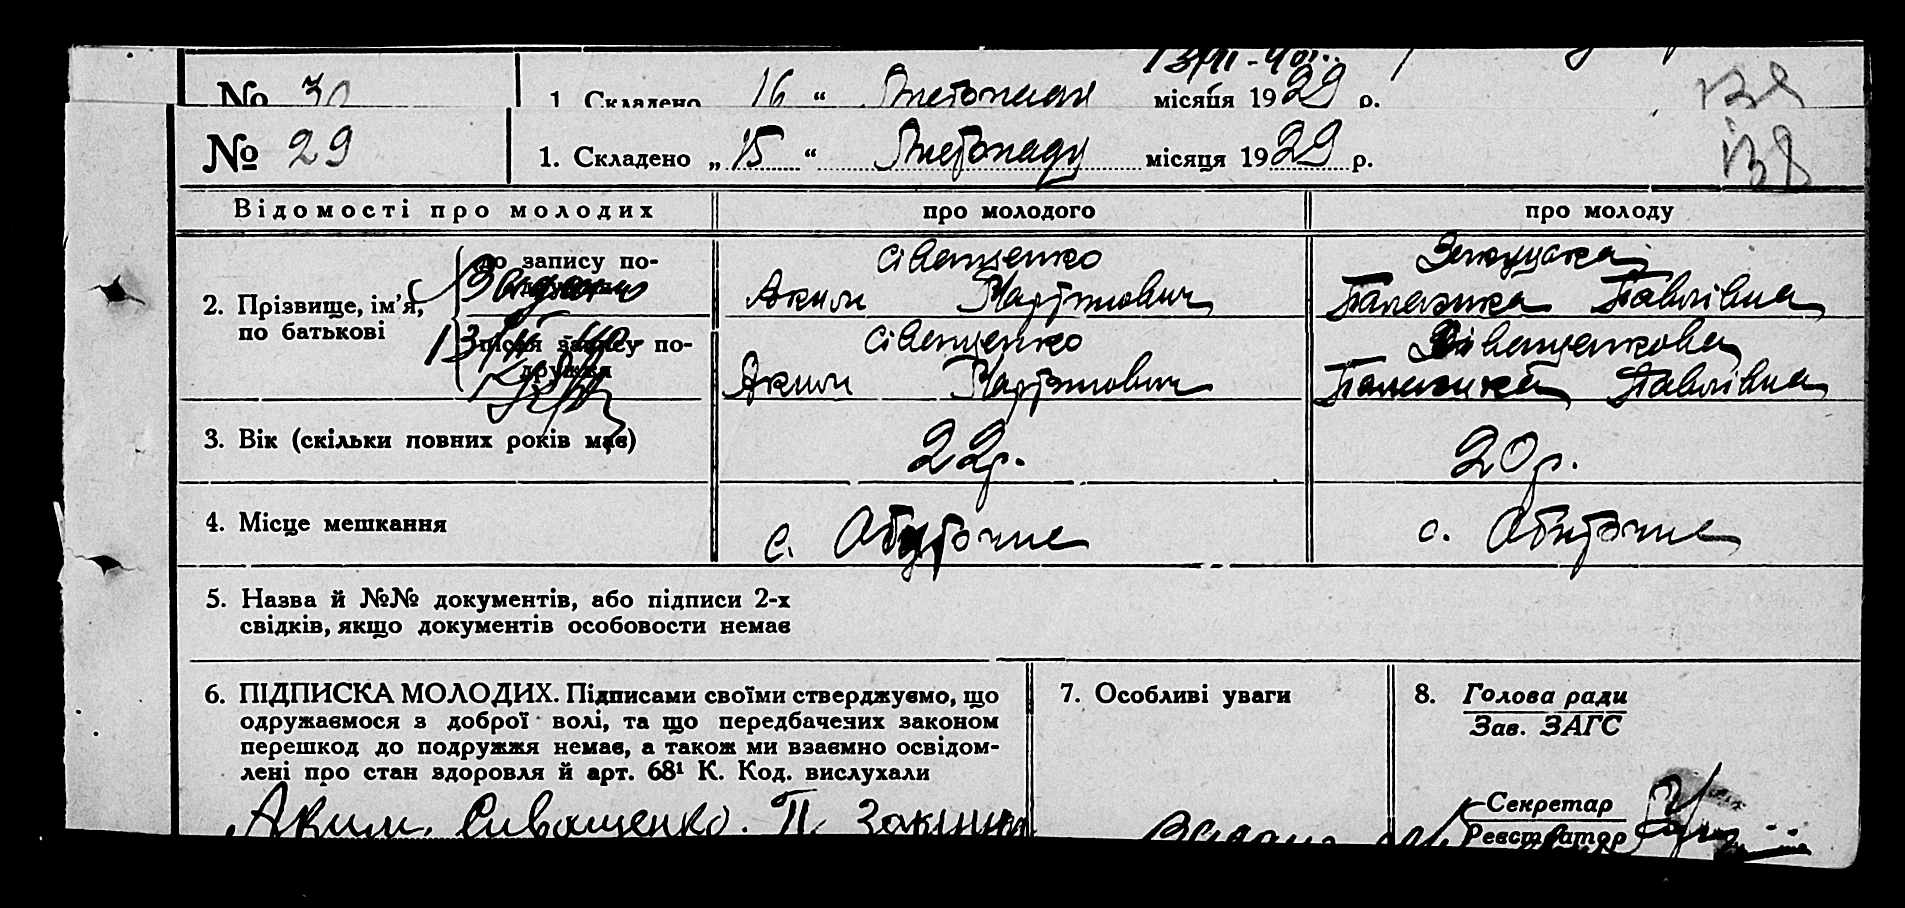 № 30
1. Складено 16 “ Листопада місяця 1929 р.
138
№ 29
1. Складено „ 15 “ Листопаду місяця 1929 р.
138
Відомості про молодих
про молодого
про молоду
2. Прізвище, ім’я, по батькові
до запису по-
Сіващенко
Аким Мартинович
Палажка Павлівна
після запису по-
дружжя
Сіващенко
Аким Мартинович
Сіващенкова
Палажка Павлівна
3. Вік (скільки повних років має)
22 р.
20 р.
4. Місце мешкання
с. Обиточне
с. Обиточне
5. Назва й №№ документів, або підписи 2-х
свідків, якщо документів особовости немає
6. ПІДПИСКА МОЛОДИХ. Підписами своїми стверджуємо, що
одружаємося з доброї волі, та що передбачених законом
перешкод до подружжя немає, а також ми взаємно освідом-
лені про стан здоровля й арт. 68¹ К. Код. вислухали
Аким. Сиващенко. П
7. Особливі уваги
8. Голова ради
Зав. ЗАГС
Секретар
Реєстратор